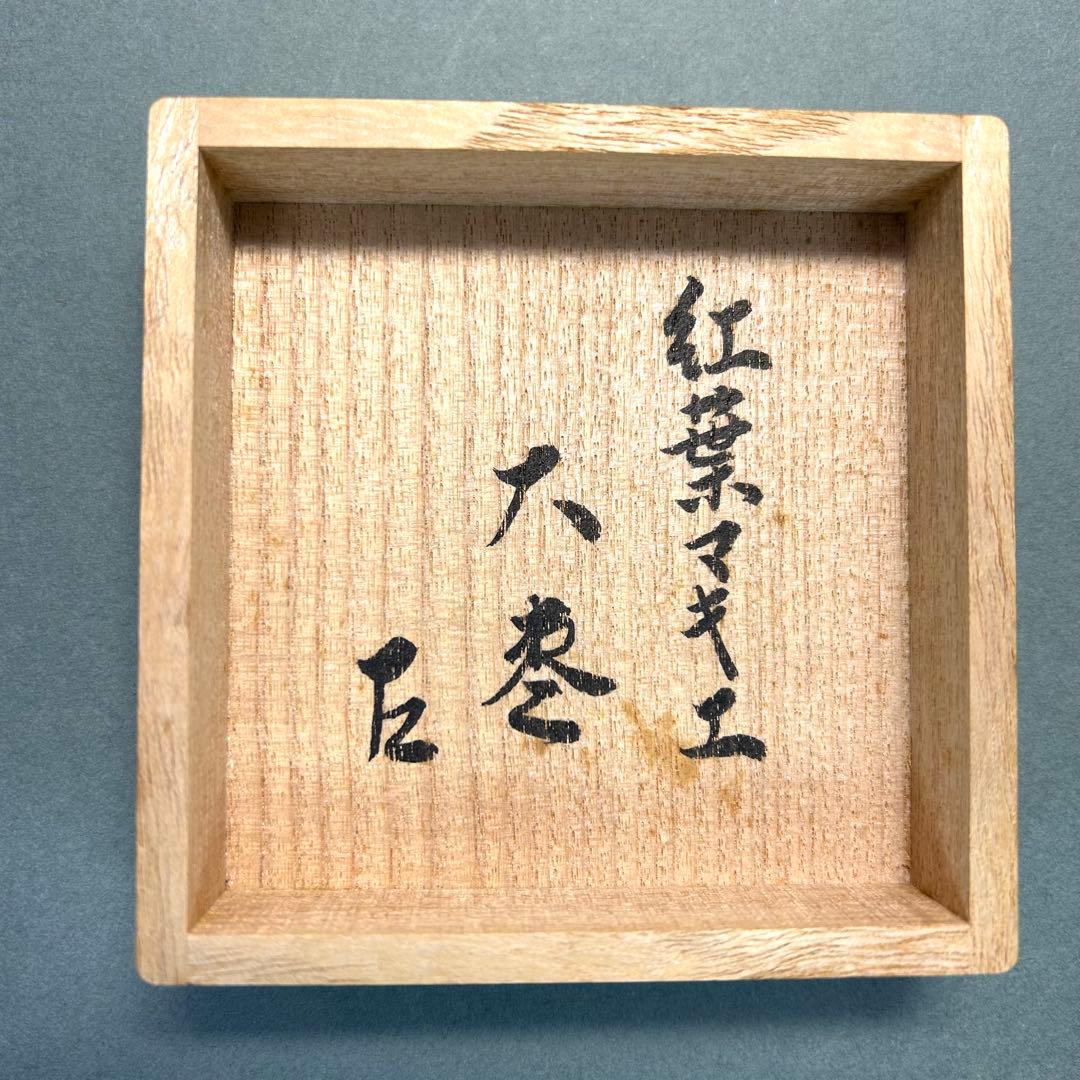 紅葉マキエ
大棗